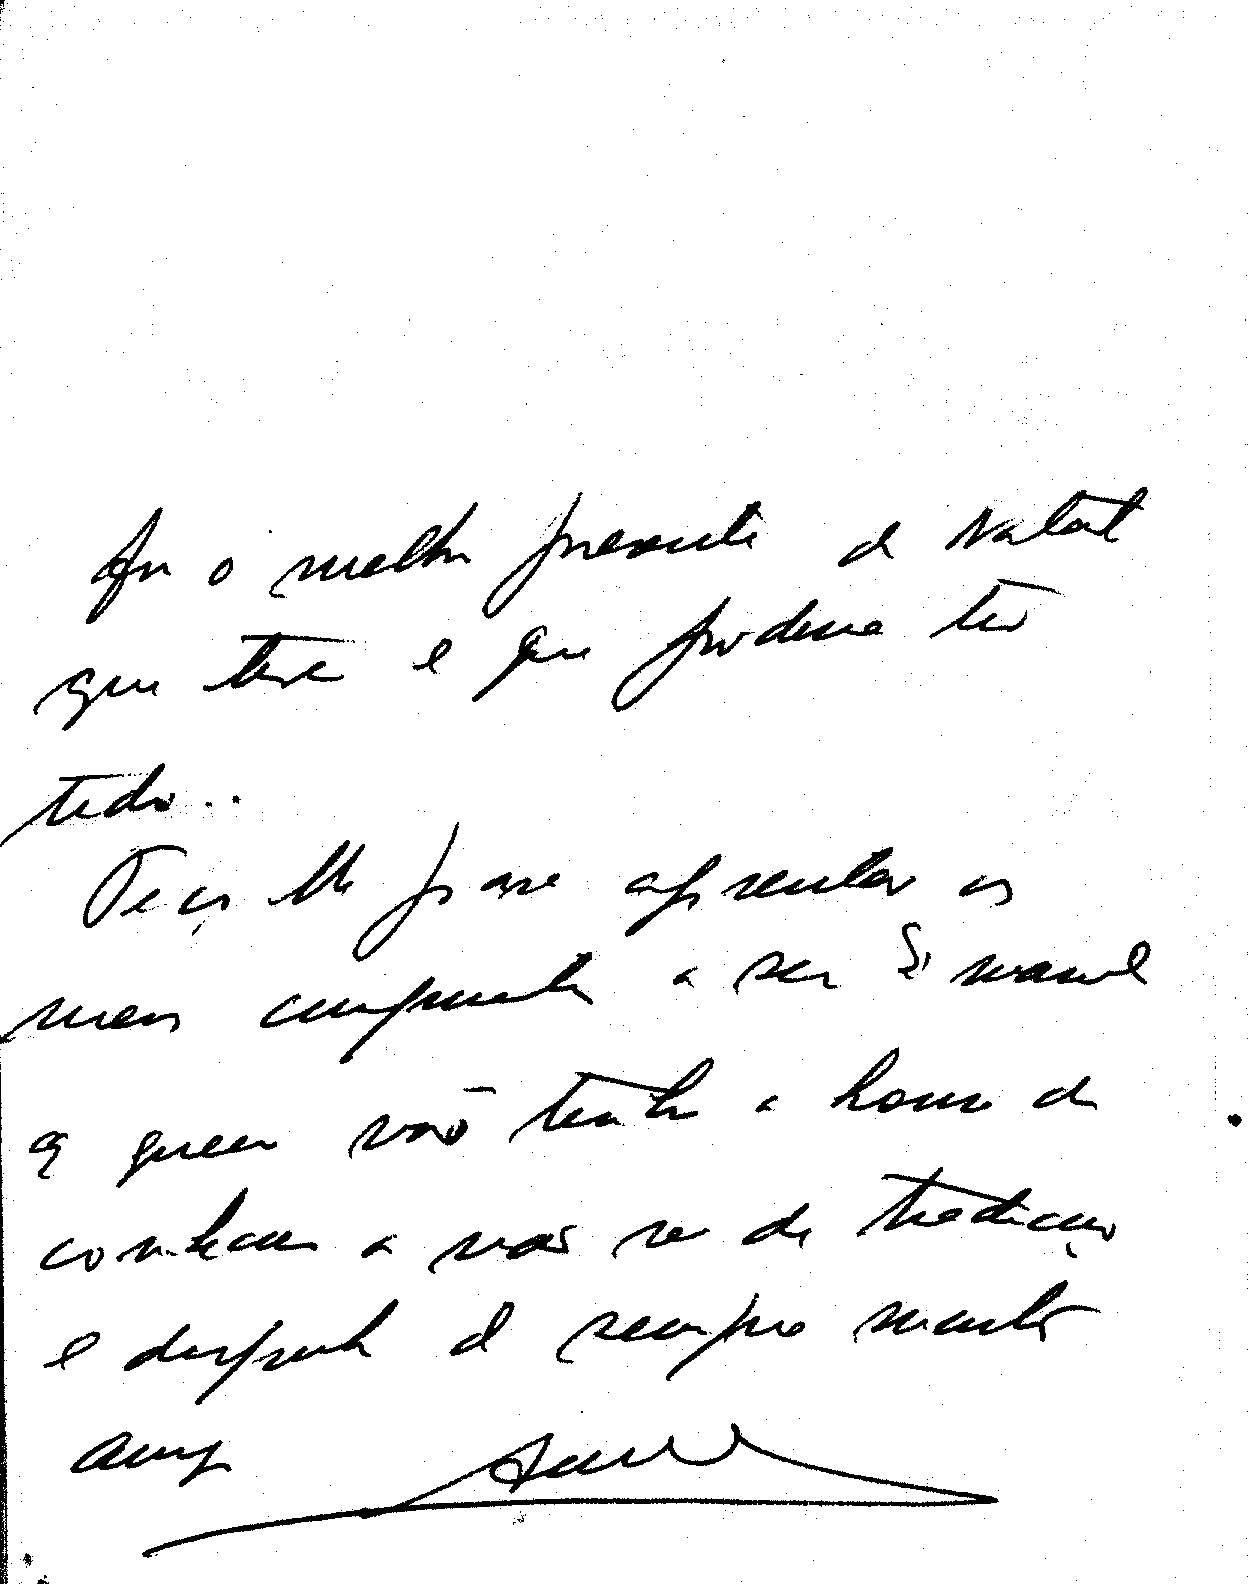 foi o melhor presente de Natal
que tive e que poderia ter
tido...
Peço lhe para apresentar os
meus cumprimentos a seu
a quem não tenho a honra de
conhecer a não ser de tradição
e disponha do sempre muito
amigo